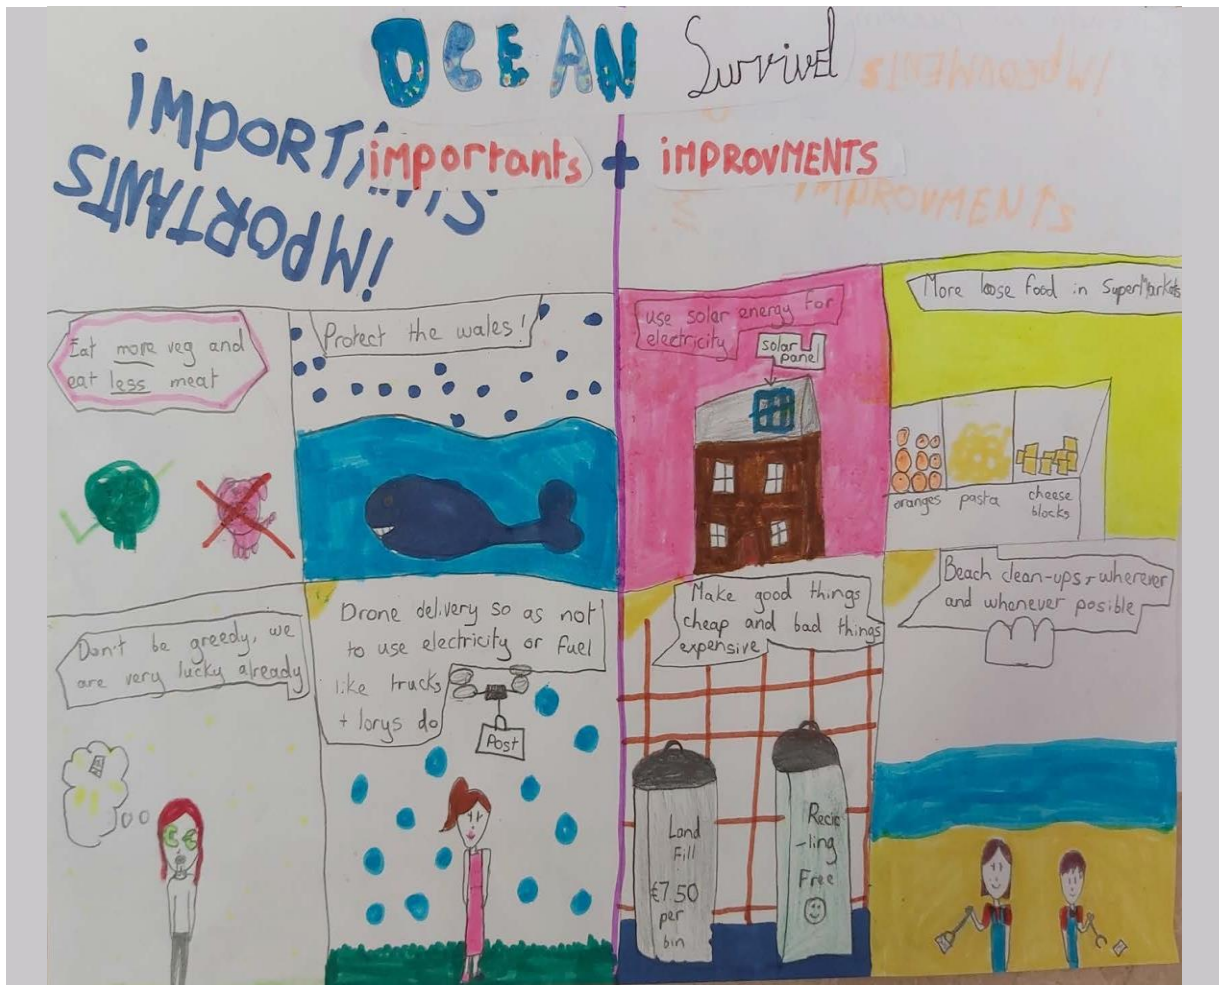 OCEAN Survival
IMPORTANTS
importants + iMPROVMENTS
IMPORTANTS
iMPROVMENTS
iMPROVMENTS
Eat more veg and
eat less meat
Protect the wales!
use solar energy for
electricity
solar
panel
More loose food in SuperMarkets
oranges pasta cheese
blocks
Don't be greedy, we
are very lucky already
Drone delivery so as not
to use electricity or fuel
like trucks
+ lorys do
Post
Make good things
cheap and bad things
expensive
Land
Fill
€7.50
per
bin
Recic
-ling
Free
Beach clean-ups, wherever
and whenever posible